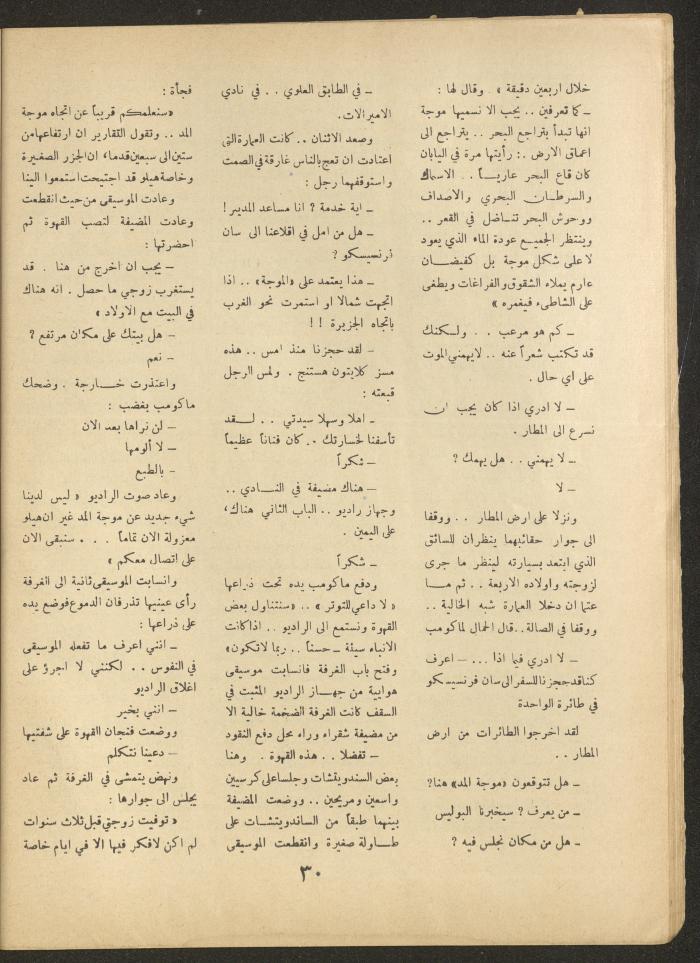 خلال اربعين دقيقة » . وقال لها :
ــ كما تعرفين .. يجب الا نسميها موجة
انها تبدأ بتراجع البحر .. يتراجع الى
اعماق الارض .: رأيتها مرة في اليابان
كان قاع البحر عارياً .. الاسماك
والسرطان البحري والاصداف
ووحوش البحر تناضل في القعر ..
وينتظر الجميع عودة الماء الذي يعود
لا على شكل موجة بل كفيضان
عارم يملاء الشقوق والفراغات ويطغى
على الشاطىء فيغمره »
ــ كم هو مرعب .. ولكنك
قد تكتب شعراً عنه .. لايهمني الموت
على اي حال .
ــ لا ادري اذا كان يجب ان
نسرع الى المطار .
ــ لا يهمني .. هل يهمك ؟
ــ لا
ونزلا على ارض المطار .. ووقفا
الى جوار حقائبهما ينظران للسائق
الذي ابتعد بسيارته لينظر ما جرى
لزوجته واولاده الاربعة .. ثم ما
عتما ان دخلا العمارة شبه الخالية ..
ووقفا في الصالة .. قال الحمال لماكومب
ــ لا ادري فيما اذا ... ــ اعرف
كنا قد حجزنا للسفر الى سان فرنسيسكو
في طائرة الواحدة
لقد اخرجوا الطائرات من ارض
المطار ..
ــ هل تتوقعون «موجة المد» هنا؟
ــ من يعرف ؟ سيخبرنا البوليس
ــ هل من مكان نجلس فيه ؟
ــ في الطابق العلوي .. في نادي
الاميرالات.
وصعد الاثنان .. كانت العمارة التي
اعتادت ان تعج بالناس غارقة في الصمت
واستوقفهما رجل :
ــ اية خدمة ؟ انا مساعد المدير !
ــ هل من امل في اقلاعنا الى سان
فرنسيسكو ؟
ــ هذا يعتمد على «الموجة» .. اذا
اتجهت شمالا او استمرت نحو الغرب
باتجاه الجزيرة !!
ــ لقد حجزنا منذ امس .. هذه
مسز كلايتون هستنج . ولمس الرجل
قبعته :
ــ اهلا وسهلا سيدتي .. لقد
تأسفنا لخسارتك .. كان فناناً عظيماً
ــ شكراً
ــ هناك مضيفة في النادي ..
وجهاز راديو .. الباب الثاني هناك،
على اليمين .
ــ شكراً
ودفع ماكومب يده تحت ذراعها
« لا داعي للتوتر » .. «سنتناول بعض
القهوة ونستمع الى الراديو .. اذا كانت
الانباء سيئة ــ حسناً .. ربما لا تكون»
وفتح باب الغرفة فانسابت موسيقى
هوايية من جهاز الراديو المثبت في
السقف كانت الغرفة الضخمة خالية الا
من مضيفة شقراء وراء محل دفع النقود
ــ تفضلا .. هذه القهوة . وهنا
بعض السندويتشات وجلسا على كرسيين
واسعين ومريحين .. ووضعت المضيفة
بينهما طبقاً من الساندويتشات على
طاولة صغيرة وانقطعت الموسيقى
فجأة :
«سنعلمكم قريباً عن اتجاه موجة
المد .. وتقول التقارير ان ارتفاعها من
ستين الى سبعين قدما، ان الجزر الصغيرة
وخاصة هيلو قد اجتيحت استمعوا الينا
وعادت الموسيقى من حيث انقطعت
وعادت المضيفة لتصب القهوة ثم
احضرتها :
ــ يجب ان اخرج من هنا . قد
يستغرب زوجي ما حصل . انه هناك
في البيت مع الاولاد »
ــ هل بيتك على مكان مرتفع ؟
ــ نعم
واعتذرت خارجة . وضحك
ماكومب بغضب :
ــ لن نراها بعد الان
ــ لا ألومها
ــ بالطبع
وعاد صوت الراديو « ليس لدينا
شيء جديد عن موجة المد غير ان هيلو
معزولة الان تماماً ... سنبقى الان
على اتصال معكم »
وانسابت الموسيقى ثانية الى الغرفة
رأى عينيها تذرفان الدموع فوضع يده
على ذراعها :
ــ انني اعرف ما تفعله الموسيقى
في النفوس .. لكنني لا اجرؤ على
اغلاق الراديو
ــ انني بخير
ووضعت فنجان القهوة على شفتيها
ــ دعينا نتكلم
ونهض يتمشى في الغرفة ثم عاد
يجلس الى جوارها :
« توفيت زوجتي قبل ثلاث سنوات
لم اكن لافكر فيها الا في ايام خاصة
٣٠